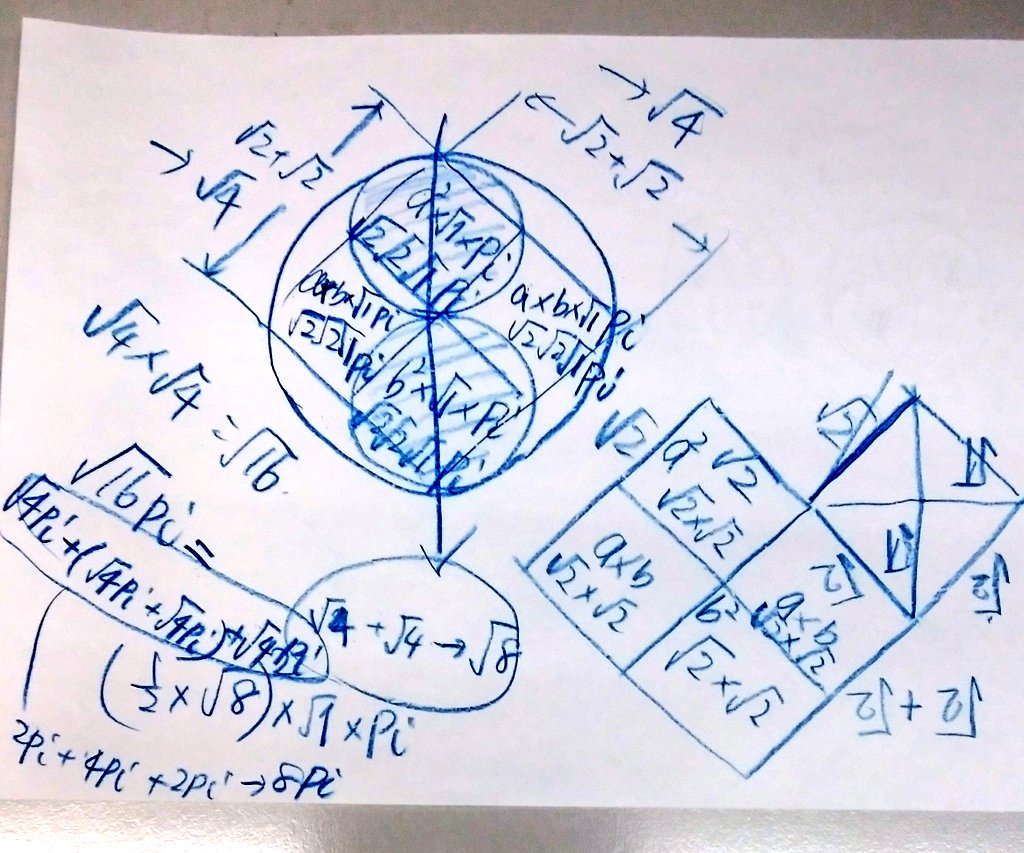 → √4
← √2+√2
√2+√2
→ √4
a²×√1×Pi
√2√2√1Pi
a×b×√1Pi
√2√2√1Pi
a×b×√1Pi
√2√2√1Pi
b²×√1×Pi
√2√2√1Pi
√4×√4=√16.
√16Pi=
√4Pi+(√4Pi+√4Pi)+√4Pi
√4+√4→√8
(1/2×√8)×√1×Pi
2Pi+4Pi+2Pi→8Pi
√2
a² √2
√2×√2
a×b
√2×√2
b²
√2×√2
√2
a×b
√2×√2
√2
√1
√1
√2
√2+√2